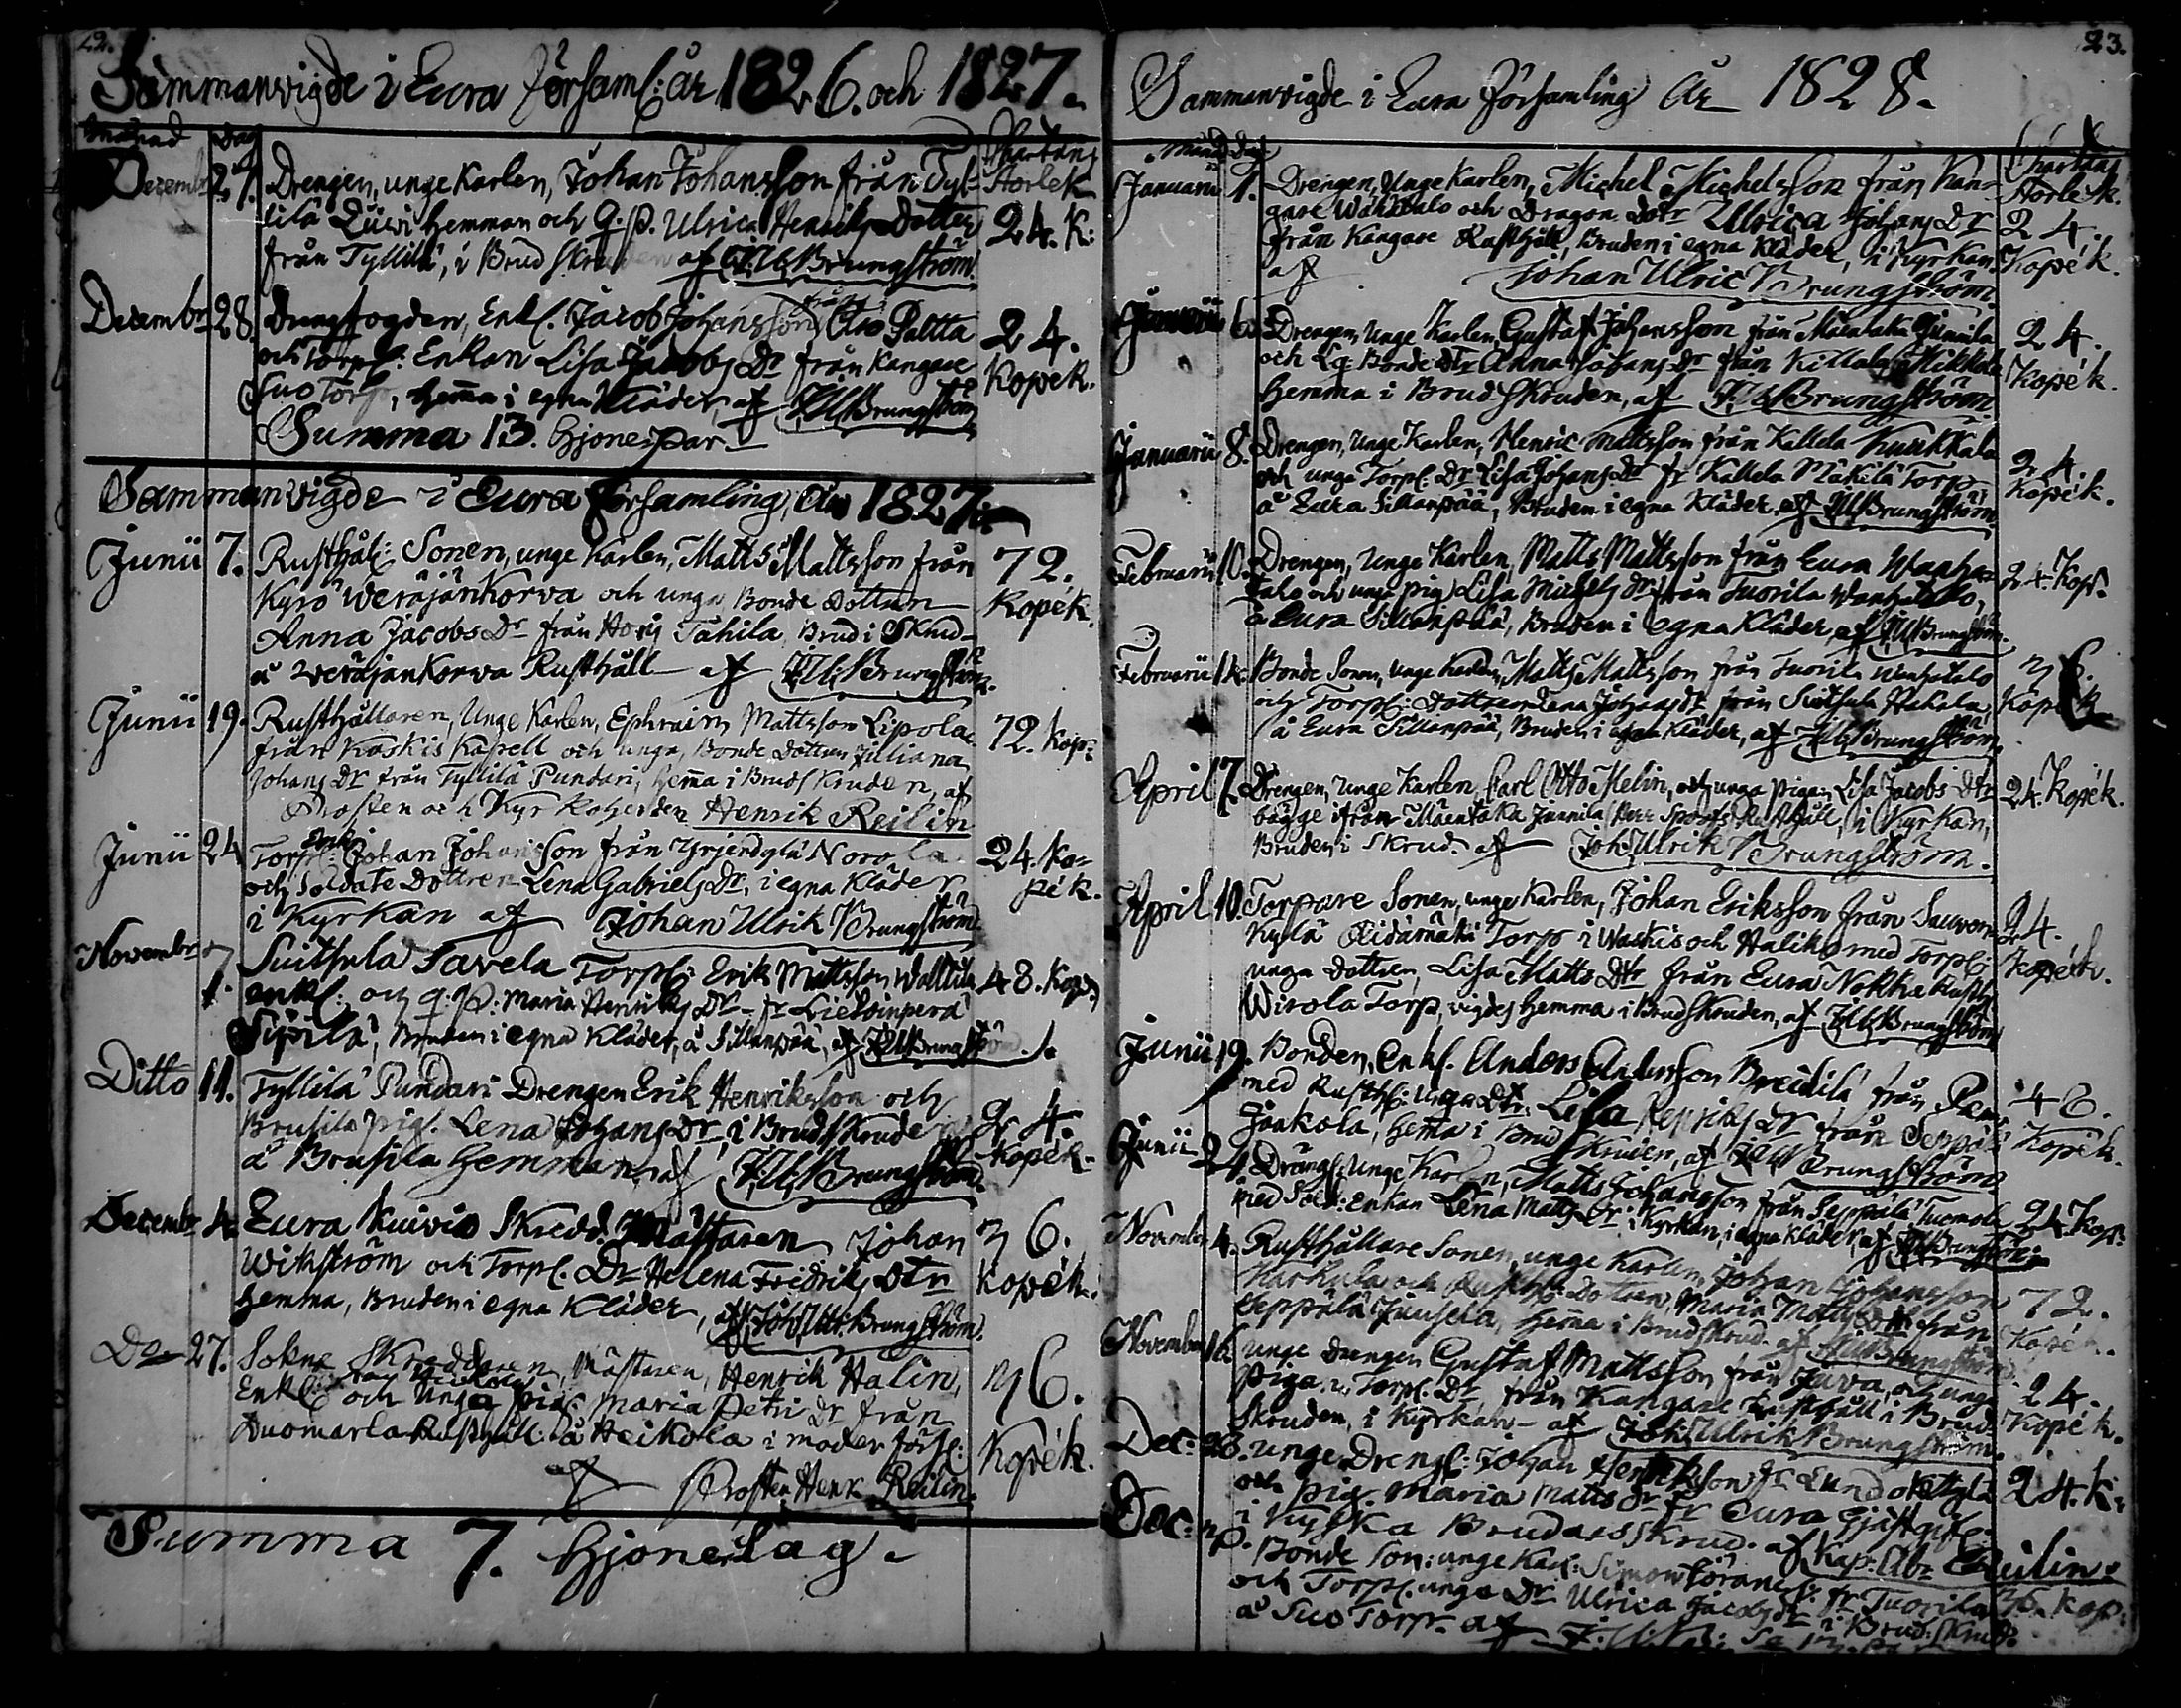 22.
Sammanwigde i Eura Församl: år 1826. och 1827.
Månad Dag Chartæ
Storlek
Decembr 27. Drengen, unge Karlen, Johan Johansson från Tyl-
lilä Hemman och q. p. Ulrica Henriks Dotter 24. K:
från Tyllilä, i Brud Skruden af J. U. Brungström.
Decembr 28. Drengfogden, Enkl. Jacob Johansson från Paltta 24.
och Torp: Enkan Lisa Jacobs Dr från Kangare Kopek.
Suo Torp, hema i egna Kläder, af J U Brungström
Summa 13. Hjonepar.
Sammanwigde i Eura Församling, År 1827.
Junii 7. Rusthål: Sonen, unge Karlen, Matts Mattsson från 72.
Kyrö Weräjänkorva och unga Bonde Dottren Kopék.
Anna Jacobs Dr från Tahila Brud i Skrud
å Weräjänkorwa Rusthåll af J. U. Brungström.
Junii 19. Rusthållaren, Unge Karlen, Ephraim Mattsson Lipola 72. Kop:
från Kaskis Kapell och unga, Bonde Dottren Juliana
Johans Dr från Tyllilä Pundari, hema i Brudskruden, af
Prosten och Kyrkoherden Henrik Reilin
Junii 24 Torp: enkl: Johan Johansson från Yrjendylä Norola 24. Ko-
och Soldate Dottren Lena Gabriels Dr, i egna Kläder pék.
i Kyrkan af Johan Ulrik Brungström.
Novembr 1. Suithula Tavela Torp: Erik Mattsson 48. Kop.
enkl: och q. p: Maria Henriks Dr - fr Lietsinperä
Sipilä, Bruden i egna Kläder, å Sillanpää, af J U Brungström.
Ditto 11. Tyllilä Pundari Drengen Erik Henriksson och
Brusila pig. Lena Johans Dr i Brudskruden 24.
å Brusila Hemman, af J. U. Brungström. Kopék.
Decembr 4. Eura Kuivio Skredd. Mästaren Johan 36.
Wikström och Torp. Dr Helena Fridriks Dtr Kopék.
hemma, Bruden i egna Kläder, af Joh Ulr. Brungström.
Do 27. Sokne Skreddaren, Mästaren, Henrik Halin, 36.
Enkl: och Unga pig. Maria Petri Dr från Kopék.
Rusthåll: å Heikola i moder förs:
af Prosten Henr Reilin.
Summa 7. Hjonelag.
23.
Sammanwigde i Eura Församling År 1828.
Månad Dag Charta
Storlek.
Januarii 1. Drengen, Unge Karlen, Michel Michelsson från Kan-
gare Wähätalo och Dragon Dotr Ulrica Johans Dr 24.
från Kangare Rusthåll, Bruden i egna Kläder, i Kyrkan. Kopék.
af Johan Ulric Brungström.
Januarii 6. Drengen, Unge Karlen, Gustaf Johansson från Mäentaka Junnila 24.
och Bonde Dtr Anna Johans Dr från Mikkola Kopék.
hemma i Brudskruden, af J. U. Brungström.
Januarii 8. Drengen, Unge Karlen, Henric Mattsson från Kallela 24.
och unga Torp: Dr Lisa Johans Dr fr Kallela Mäkilä Torp Kopék.
å Eura Sillanpää, Bruden i egna Kläder, af J U Brungström
Februarii 10. Drengen, Unge Karlen, Matts Mattsson från Eura Wanha- 24. Kop.
talo och unga pig Lisa Michels Dr från Tuorila Wanhatalo,
å Eura Sillanpää, Bruden i egna Kläder, af J U Brungström.
Februarii 14. Bonde Sonen, Unge Karlen, Matts Mattsson från Tuorila Wanhatalo 36.
och Torp: Dottren Lena Johans Dr från Suithula Kopék
å Eura Sillanpää, Bruden i egna Kläder, af J U Brungström.
April 7. Drengen, Unge Karlen, Carl Otto Melin, och unga pigan, Lisa Jacobs Dtr 24. Kopék.
bägge ifrån Mäentaka Junnila Rusthåll, i Kyrkan,
Bruden i Skrud. af Joh. Ulrik Brungström.
April 10. Torpare Sonen, unge Karlen, Johan Eriksson från Sauvon- 24.
kylä Torp i Waskis och Haliko med Torp: Kopék.
unga Dottren, Lisa Matts Dtr från Eura Nokka Rusth:
Wirola Torp, wigdes hemma i Brudskruden, af J U Brungström
Junii 19. Bonden, Enkl. Anders Andersson Breidilä från 48.
med Rusth: Unga Dtr Lisa Henriks Dr från Seppälä Kopék.
Jaakola, hema i Brudskruden, af J U Brungström
Junii 24. Dräng: Unge Karlen, Matts Johansson från Seppälä Tuomola 24. Kop.
med Sold: Enkan Lena Matts Dr, i Kyrkan, i egna Kläder, af J U Brungström.
November 4. Rusthållare Sonen, unge Karlen, Johan Johansson 72.
och Rusth: Dottren, Maria Matts Dtr från Kopék.
Seppälä Juusela, hema i Brudskrud. af J U Brungström
November 16. unge Drengen Gustaf Mattsson från Juva, och unga 24.
piga, Torp. Dr från Kangare Rusthåll i Brud- Kopék.
skruden, i Kyrkan - af Joh. Ulrik Brungström.
Dec: unge Dreng: Johan Henriksson fr Lundokettylä 24. K:
och pig. Maria Matts Dr fr Eura Gjästgif:
i Kyrka Brudaes Skrud. af Kap: Abr Reilin.
Dec: Bonde Son: unge Karl: Simon fr Tuorila 36. Kop:
och Torp. unga Dr Ulrica Jacobs Dr i Brud: Skrud.
å Suo Torp. af